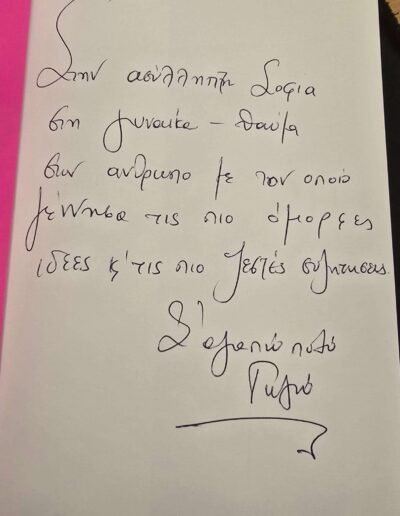 Στην ασύλληπτη Σοφία
στη γυναίκα – θαύμα
στον άνθρωπο με τον οποίο
γέννησα τις πιο όμορφες
ιδέες κ' τις πιο ζεστές συζητήσεις.
Σ' αγαπώ πολύ